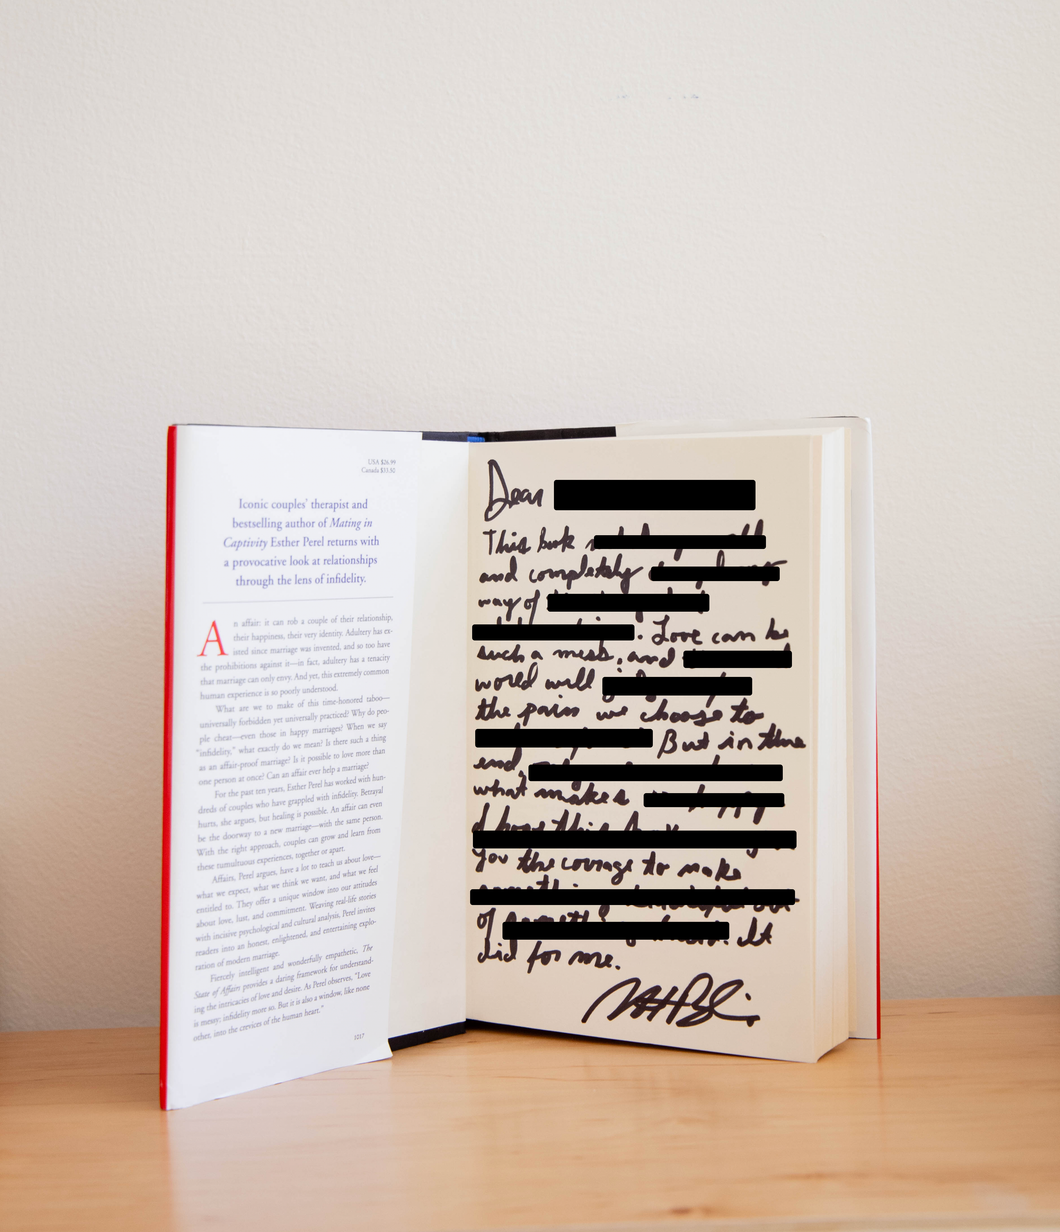 USA $26.99
Canada $33.50
Iconic couples' therapist and
bestselling author of Mating in
Captivity Esther Perel returns with
a provocative look at relationships
through the lens of infidelity.
An affair: it can rob a couple of their relationship,
their happiness, their very identity. Adultery has ex-
isted since marriage was invented, and so too have
the prohibitions against it—in fact, adultery has a tenacity
that marriage can only envy. And yet, this extremely common
human experience is so poorly understood.
What are we to make of this time-honored taboo—
universally forbidden yet universally practiced? Why do peo-
ple cheat—even those in happy marriages? When we say
"infidelity," what exactly do we mean? Is there such a thing
as an affair-proof marriage? Is it possible to love more than
one person at once? Can an affair ever help a marriage?
For the past ten years, Esther Perel has worked with hun-
dreds of couples who have grappled with infidelity. Betrayal
hurts, she argues, but healing is possible. An affair can even
be the doorway to a new marriage—with the same person.
With the right approach, couples can grow and learn from
these tumultuous experiences, together or apart.
Affairs, Perel argues, have a lot to teach us about love—
what we expect, what we think we want, and what we feel
entitled to. They offer a unique window into our attitudes
about love, lust, and commitment. Weaving real-life stories
with incisive psychological and cultural analysis, Perel invites
readers into an honest, enlightened, and entertaining explo-
ration of modern marriage.
Fiercely intelligent and wonderfully empathetic, The
State of Affairs provides a daring framework for understand-
ing the intricacies of love and desire. As Perel observes, "Love
is messy; infidelity more so. But it is also a window, like none
other, into the crevices of the human heart."
1017
Dear
This book
and completely
way of
. Love can be
such a mess, and
world will
the pain we choose to
But in the
end,
what makes
I hope this
you the courage to make
of It
did for me.